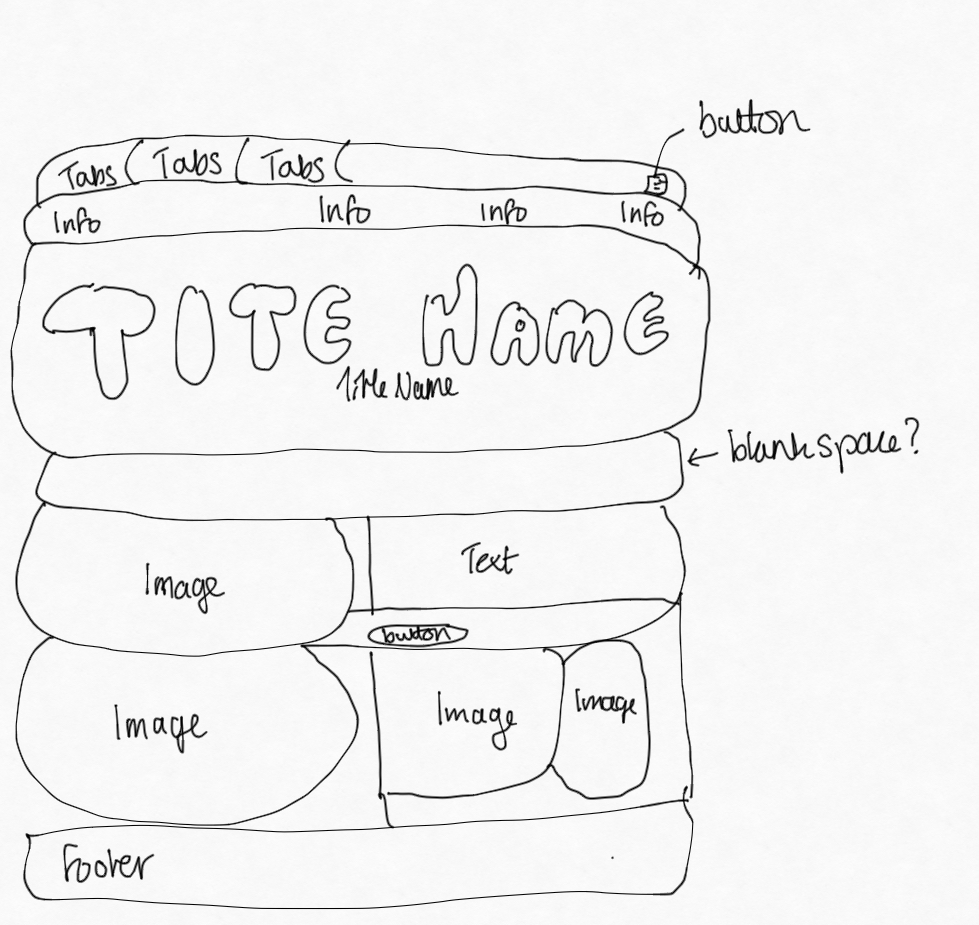 button
Tabs Tabs Tabs
Info Info Info Info
TITE NAME
Title Name
blank space?
Image Text
button
Image Image Image
Footer